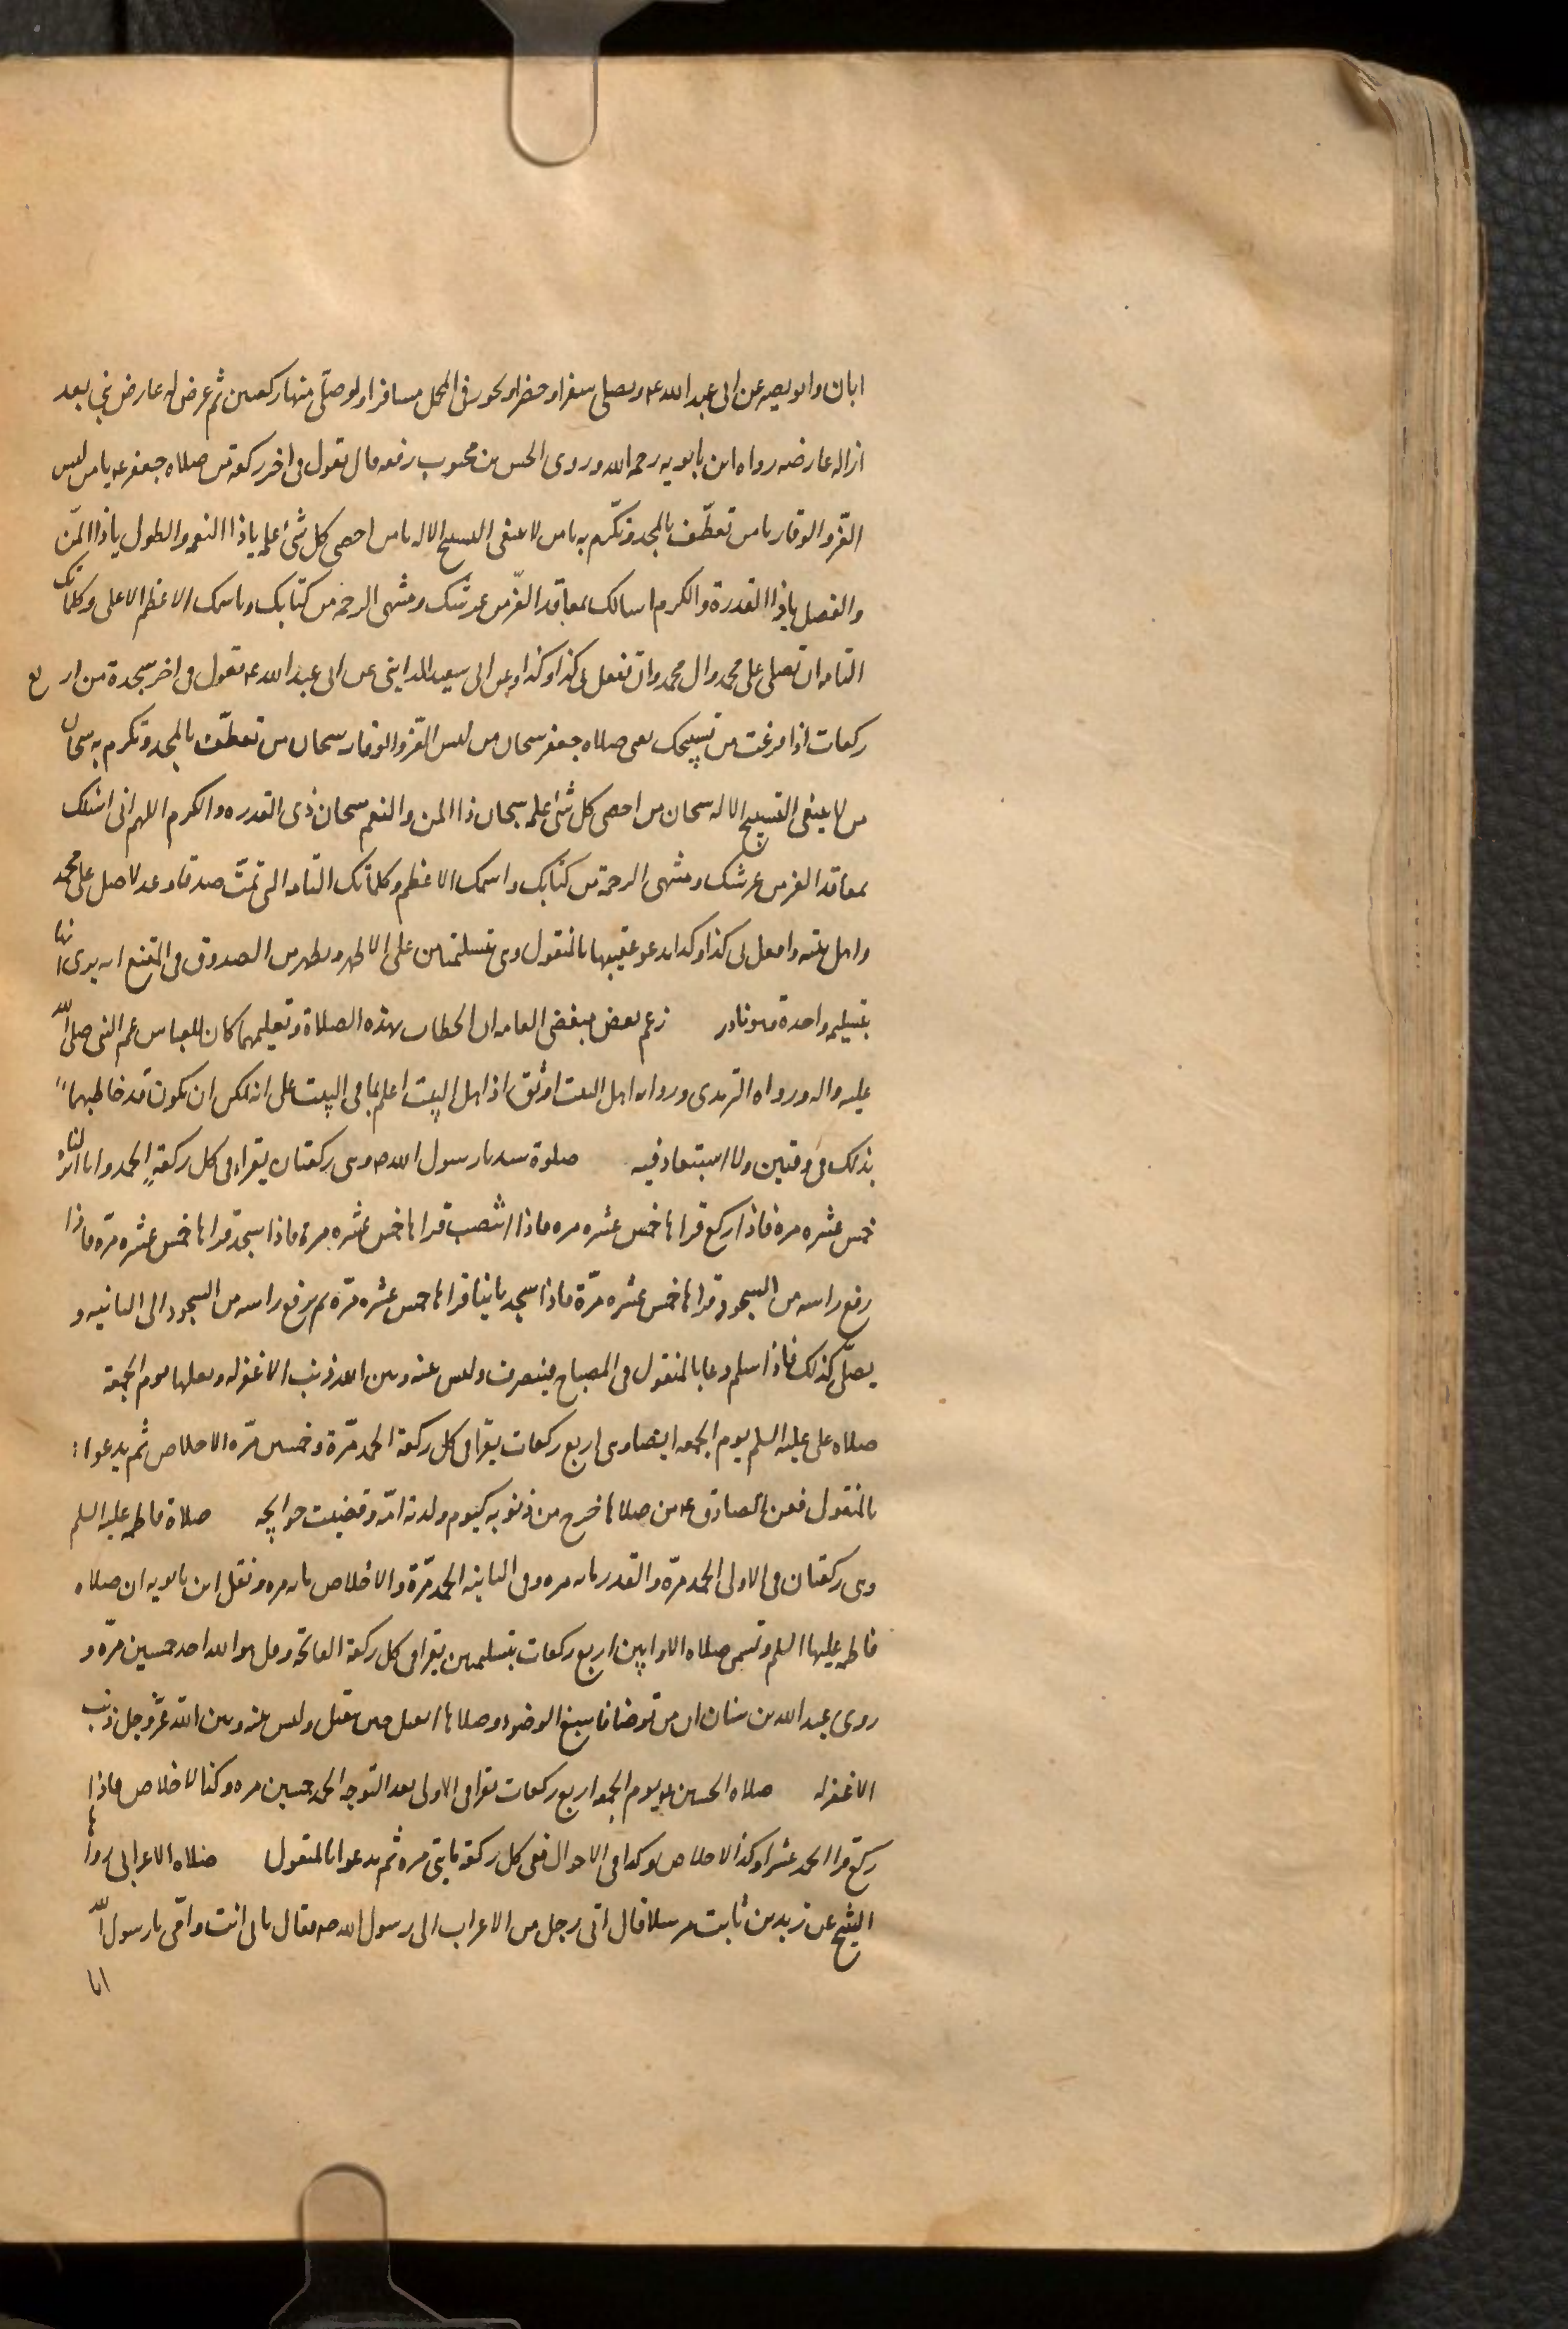 ابان وابو بصير عن ابي عبد الله ع ويصلي سفرا وحضرا ويجوز في المحمل مسافرا ولو صلى منها ركعتين ثم عرض له عارض بنى بعد
ازالة عارضه رواه ابن بابويه رحمه الله وروى الحسن بن محبوب رفعه قال تقول في اخر ركعة من صلاة جعفر ع يا من لبس
العز والوقار يا من تعطّف بالمجد وتكرّم به يا من لا ينبغي التسبيح الا له يا من احصى كل شئ علمه يا ذا النعمه والطول يا ذا المنّ
والفضل يا ذا القدرة والكرم اسالك بمعاقد العزّ من عرشك ومنتهى الرحمة من كتابك وباسمك الاعظم الاعلى وكلماتك
التامه ان تصلي على محمد وال محمد وان تفعل بي كذا وكذا وعن ابي سعيد المدايني عن ابي عبد الله ع تقول في اخر سجدة من اربع
ركعات اذا فرغت من تسبيحك يعني صلاة جعفر سبحان من لبس العزّ والوقار سبحان من تعطّف بالمجد وتكرم به سبحان
من لا ينبغي التسبيح الا له سبحان من احصى كل شئ علمه سبحان ذا المن والنعم سبحان ذي القدره والكرم اللهم اني اسئلك
بمعاقد العز من عرشك ومنتهى الرحمة من كتابك واسمك الاعظم وكلماتك التامه التي تمّت صدقا وعدلا صل على محمد
واهل بيته وافعل بي كذا وكذا يدعو عقيبها بالمنقول وهي بتسليمتين على الاظهر ويظهر من الصدوق في المقنع انه يرى انها
بتسليمه واحدة وهو نادر زعم بعض مبغضي العامه ان الخطاب بهذه الصلاة وتعليمها كان للعباس عم النبي صلى الله
عليه واله ورواه الترمذي ورواية اهل البيت اوثق اذ اهل البيت اعلم بما في البيت على انه يمكن ان يكون قد خاطبهما
بذلك في وقتين ولا استبعاد فيه صلوة سيدنا رسول الله ص وهي ركعتان يقراء في كل ركعةٍ الحمد وانا انزلناه
خمس عشره مرة فاذا ركع قراها خمس عشره مره فاذا انتصب قراها خمس عشره مرة فاذا سجد قراها خمس عشره مرّه فاذا
رفع راسه من السجود قراها خمس عشره مرّة فاذا سجد ثانيا قراها خمس عشره مرّة ثم يرفع راسه من السجود الى الثانيه و
يصلّي كذلك فاذا سلم دعا بالمنقول في المصباح فينصرف وليس عنه وبين الله ذنب الا غفر له ويصليها يوم الجمعة
صلاة علي عليه السلم يوم الجمعه ايضا وهي اربع ركعات يقرا في كل ركعة الحمد مرّة وخمسين مرّه الاخلاص ثم يدعوا
بالمنقول فعن الصادق ع من صلاها خرج من ذنوبه كيوم ولدته امّه وقضيت حوايجه صلاة فاطمه عليها السلم
وهي ركعتان في الاولى الحمد مرّة والقدر مائه مره وفي الثانيه الحمد مرّة والاخلاص مائه مره ونقل ابن بابويه ان صلاة
فاطمه عليها السلم وتسمى صلاة الاوابين اربع ركعات بتسليمتين يقرا في كل ركعة الفاتحة وقل هو الله احد خمسين مرّه و
روى عبد الله بن سنان ان من توضا فاسبغ الوضوء وصلاها انفتل حين ينفتل وليس عنه وبين الله عزّ وجل ذنب
الا غفر له صلاة الحسين ع يوم الجمعه اربع ركعات يقرا في الاولى بعد التوجه الحمد خمسين مره وكذا الاخلاص فاذا
ركع قرا الحمد عشرا وكذا الاخلاص وكذا في الاحوال ففي كل ركعة مايتي مره ثم يدعوا بالمنقول صلاة الاعرابي رواها
الشيخ عن زيد بن ثابت مرسلا قال اتى رجل من الاعراب الى رسول الله ص فقال بابي انت وامّي يا رسول الله
انا